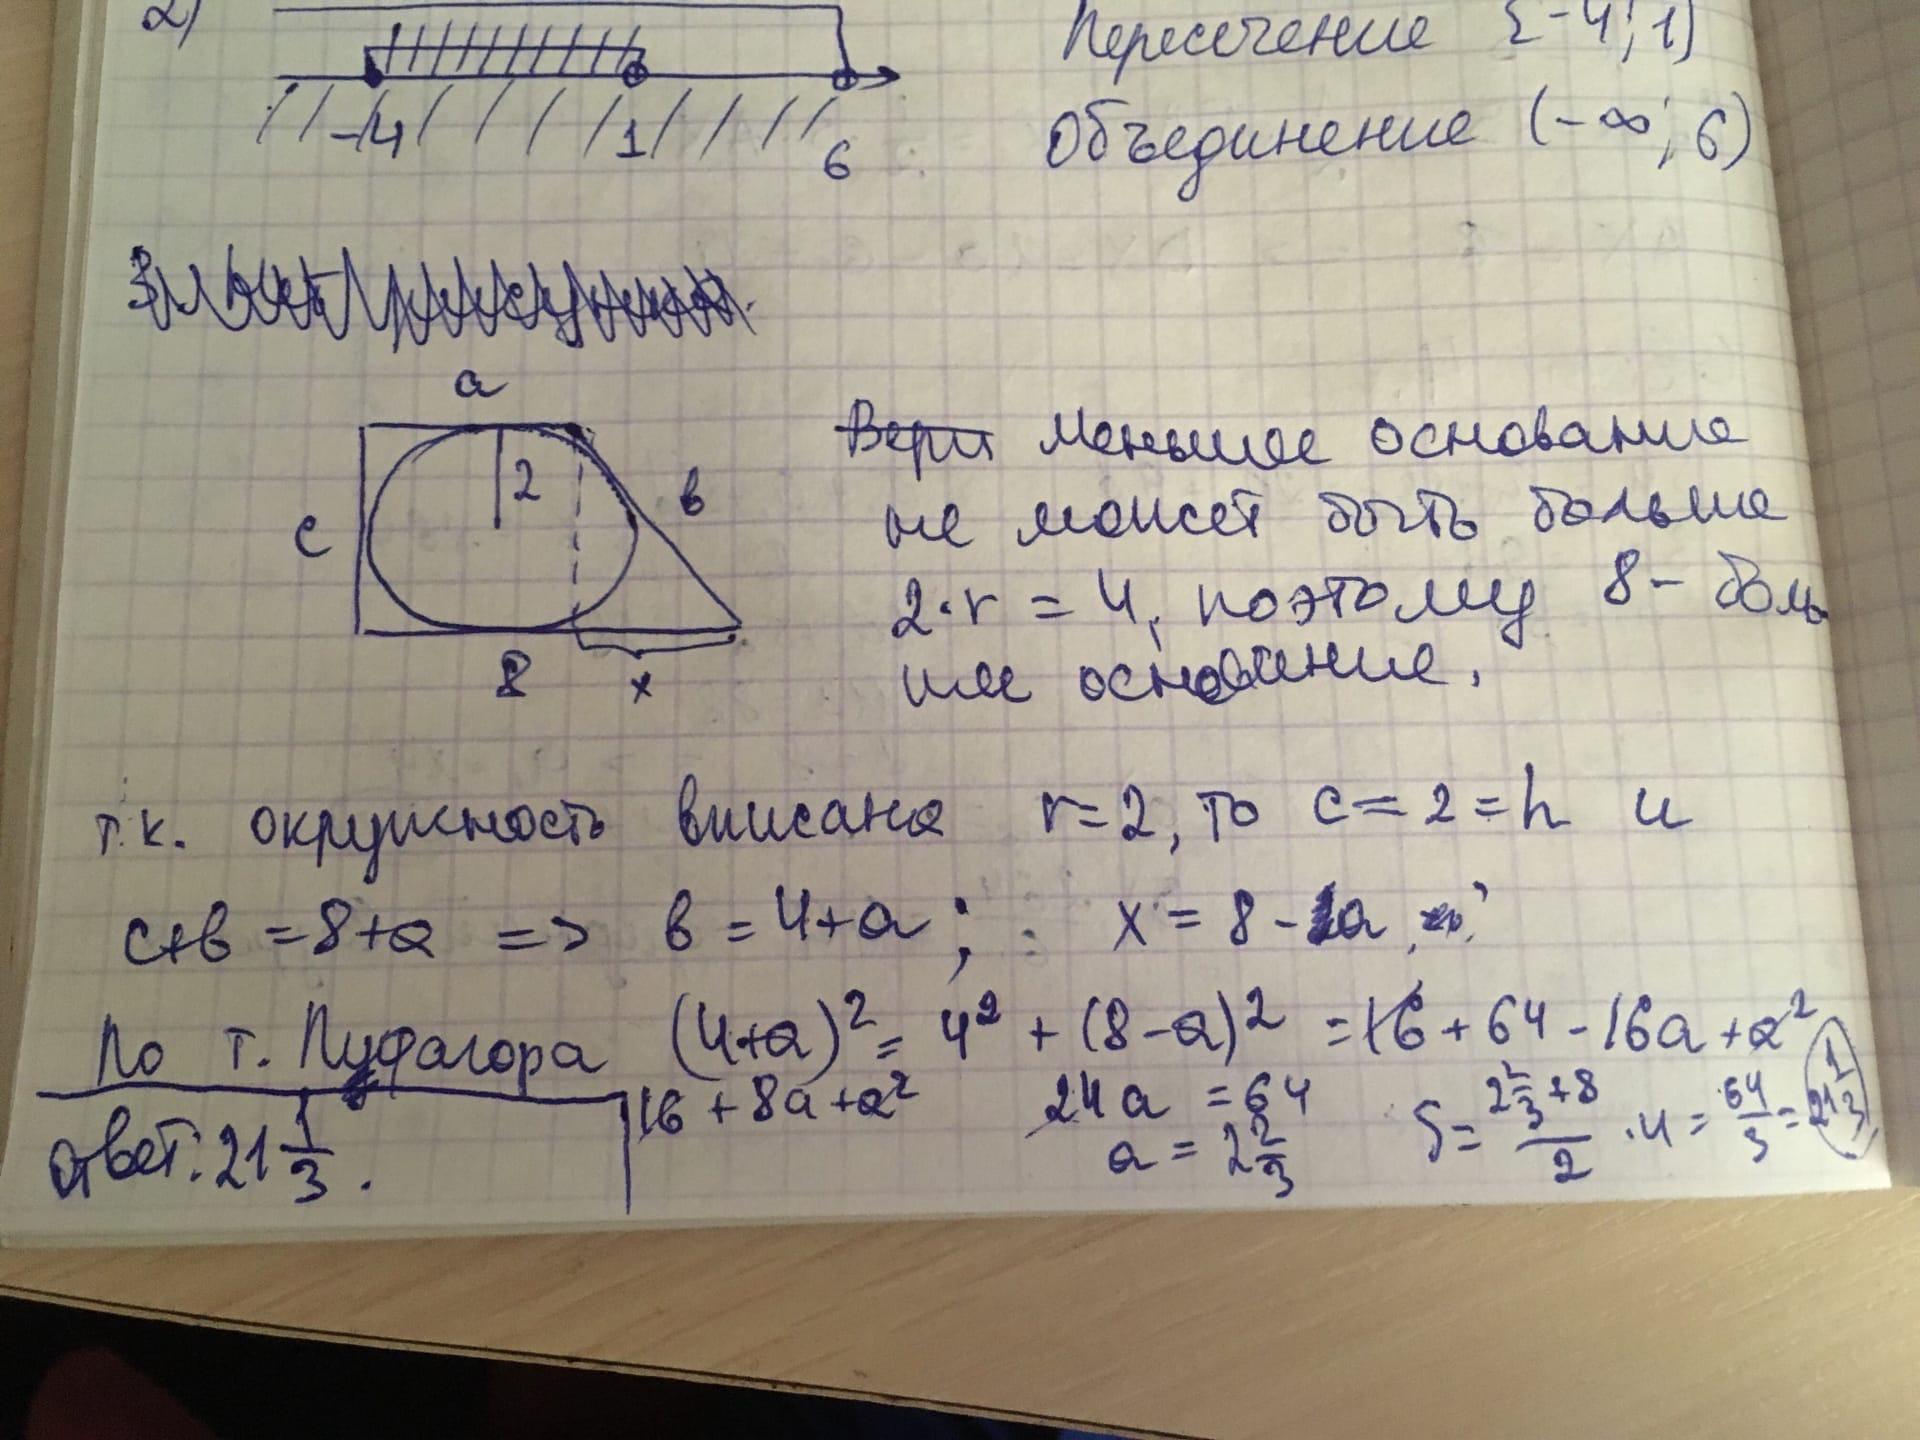 2)
Пересечение [-4; 1)
-4 1 6
Объединение (-∞; 6)
a
c 2 в
8 x
Меньшее основание
не может быть больше
2·r = 4, поэтому 8 - боль
шее основание.
т.к. окружность вписана r=2, то c=2=h и
c+в = 8+a => в = 4+a; x = 8-a
По т. Пуфагора (4+a)² = 4² + (8-a)² = 16 + 64 - 16a + a²
16 + 8a + a² 24a = 64 S = (2 2/3 + 8)/2 · 4 = 64/3 = 21 1/3
a = 2 2/3
ответ: 21 1/3.